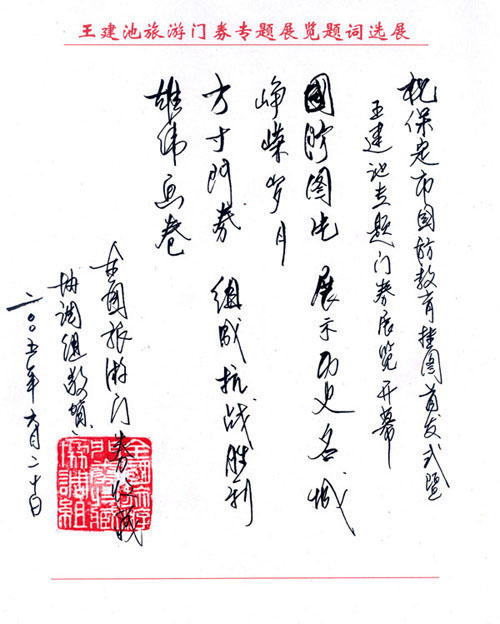 王建池旅游门券专题展览题词选展
祝保定市国防教育挂图首发式暨
王建池专题门券展览开幕
国防图片 展示历史名城
峥嵘岁月
方寸门券 组成抗战胜利
雄伟画卷
全国旅游门券收藏
协调组敬贺
二〇〇五年六月二十日